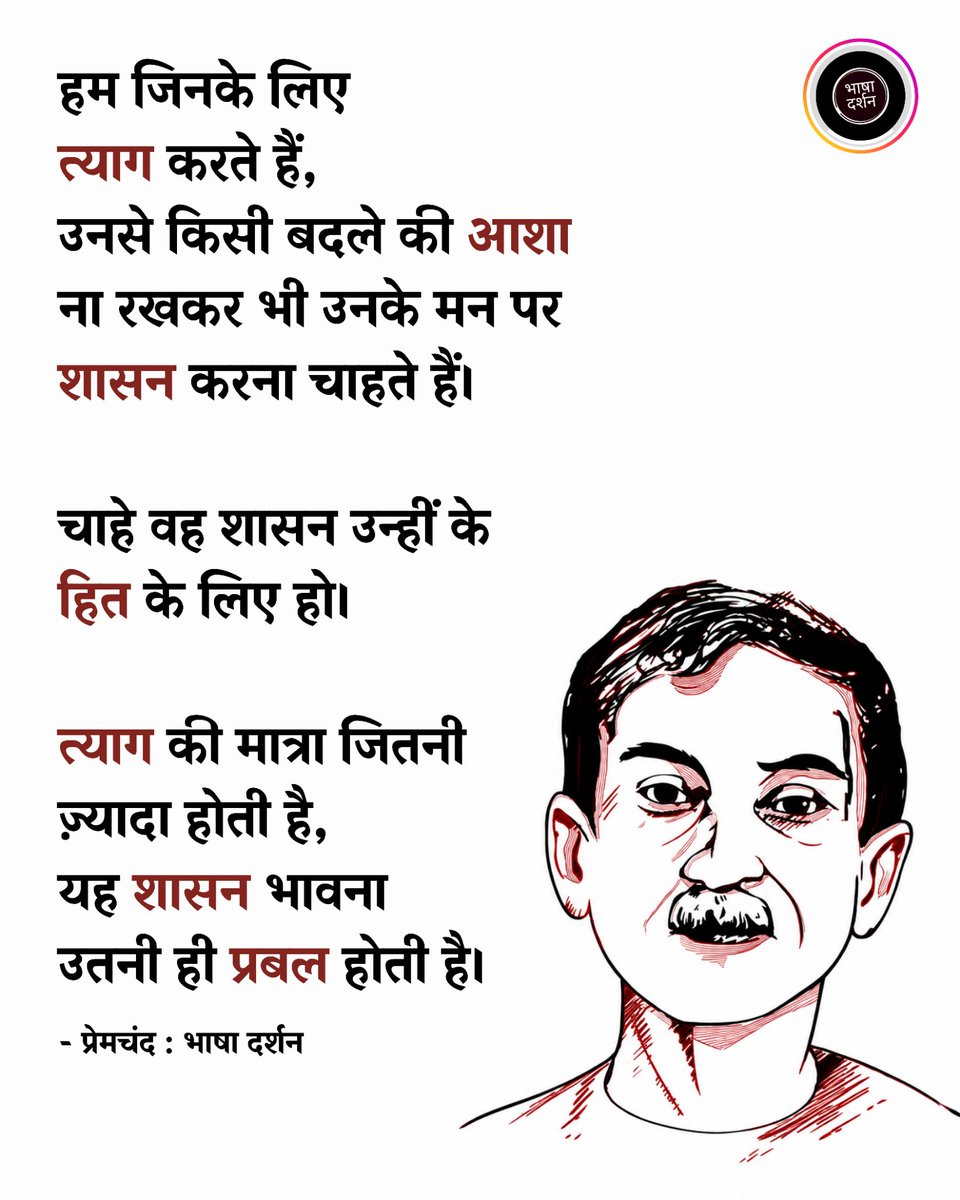 भाषा
दर्शन
हम जिनके लिए
त्याग करते हैं,
उनसे किसी बदले की आशा
ना रखकर भी उनके मन पर
शासन करना चाहते हैं।
चाहे वह शासन उन्हीं के
हित के लिए हो।
त्याग की मात्रा जितनी
ज़्यादा होती है,
यह शासन भावना
उतनी ही प्रबल होती है।
- प्रेमचंद : भाषा दर्शन